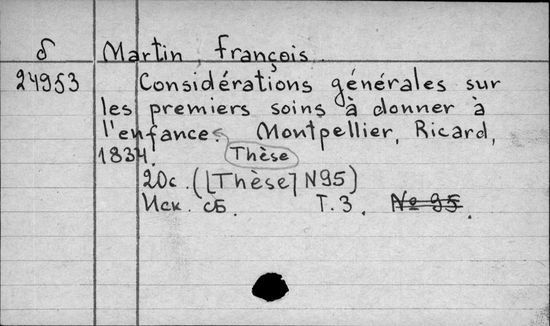 δ Martin, François.
24953 Considérations générales sur
les premiers soins à donner à
l'enfance. Montpellier, Ricard,
1834. Thèse
20c. ([Thèse] N95)
Иск. сб. Т. 3. № 95.